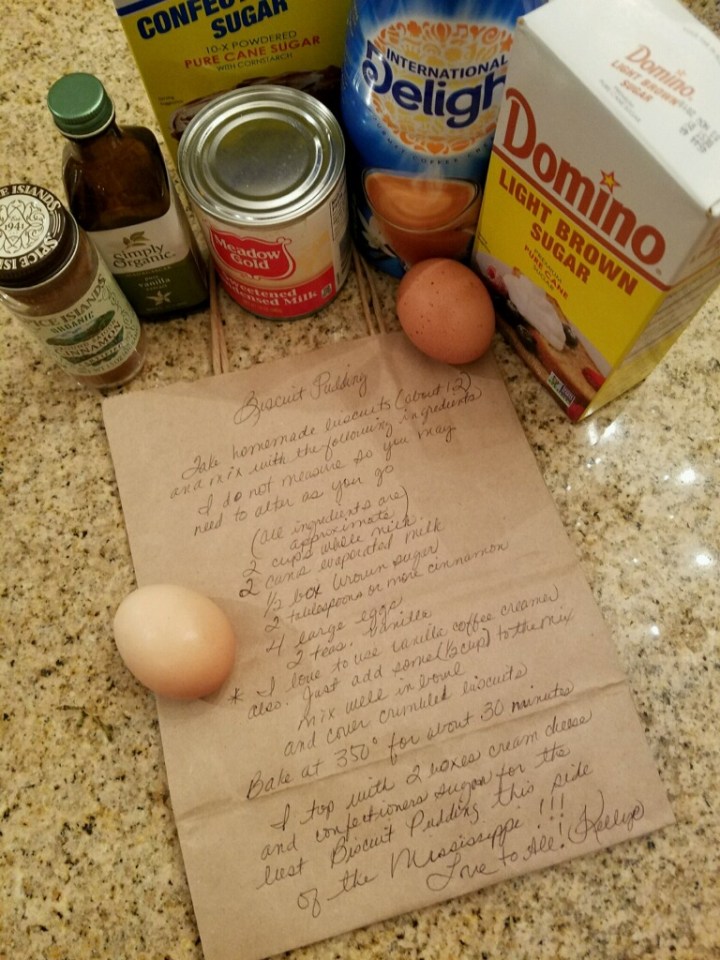 CONFEC
SUGAR
10-X POWDERED
PURE CANE SUGAR
WITH CORNSTARCH
INTERNATIONAL
Deligh
Domino
LIGHT BROWN
SUGAR
Domino
LIGHT BROWN
SUGAR
PURE CANE
simply
Organic
vanilla
Meadow
Gold
Sweetened
Condensed Milk
SPICE ISLANDS
1941
SPICE ISLANDS
ORGANIC
CINNAMON
Biscuit Pudding
Take homemade biscuits (about 12)
and mix with the following ingredients
I do not measure so you may
need to alter as you go
(all ingredients are
approximate)
2 cups whole milk
2 cans evaporated milk
1/2 box brown sugar
2 tablespoons or more cinnamon
4 large eggs
2 teas. vanilla
* I love to use vanilla coffee creamer
also. Just add some (1/2 cup) to the mix
Mix well in bowl
and cover crumbled biscuits
Bake at 350° for about 30 minutes
I top with 2 boxes cream cheese
and confectioners sugar for the
best Biscuit Pudding this side
of the Mississippi!!!
Love to All! Kellye